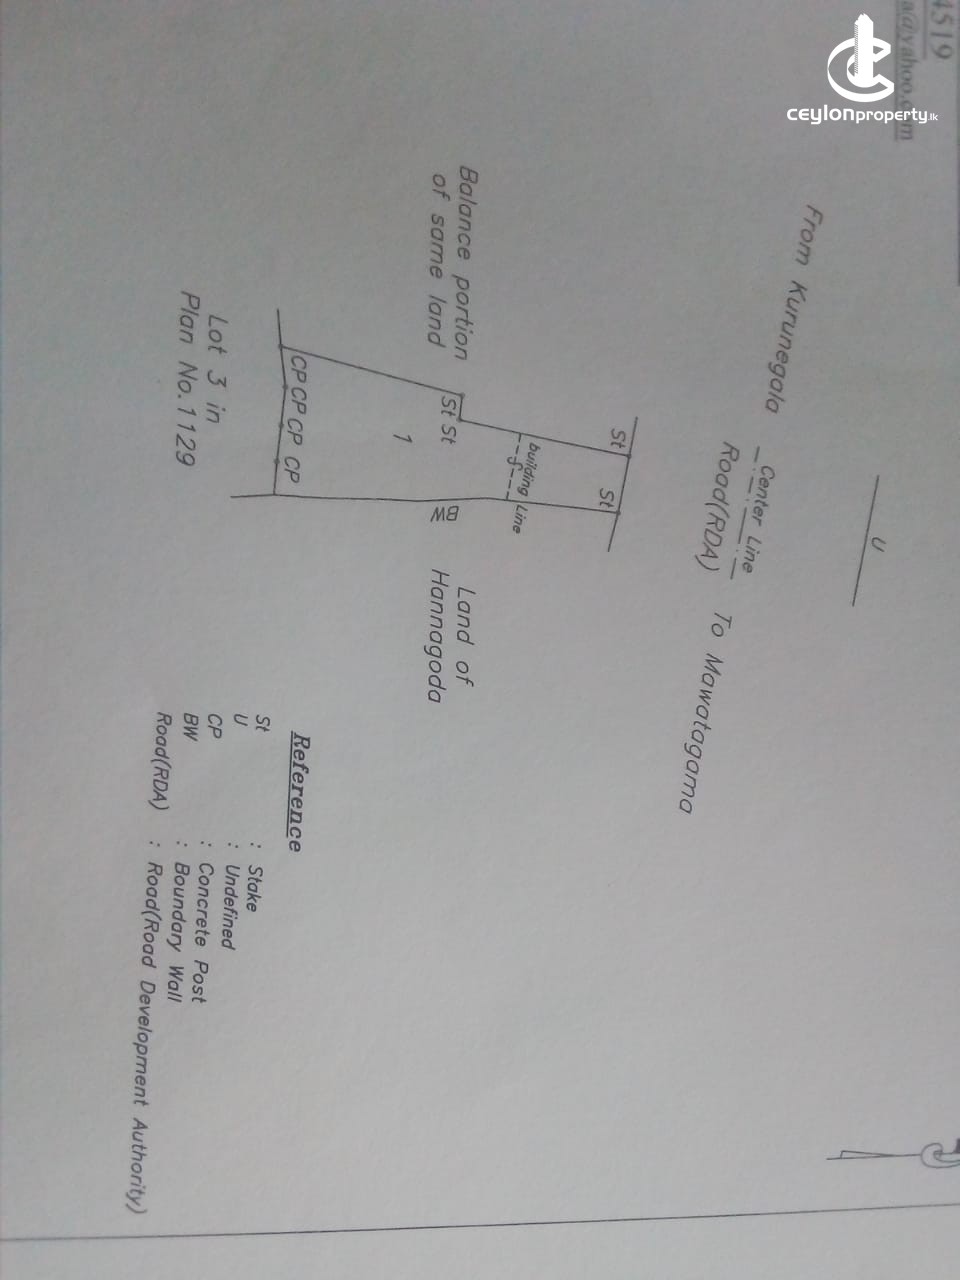 4519
a@yahoo.com
ceylonproperty.lk
U
From Kurunegala
Center Line
Road(RDA)
To Mawatagama
St
St
building Line
Balance portion
of same land
St St
1
BW
Land of
Hannagoda
CP CP CP CP
Lot 3 in
Plan No.1129
Reference
St : Stake
U : Undefined
CP : Concrete Post
BW : Boundary Wall
Road(RDA) : Road(Road Development Authority)